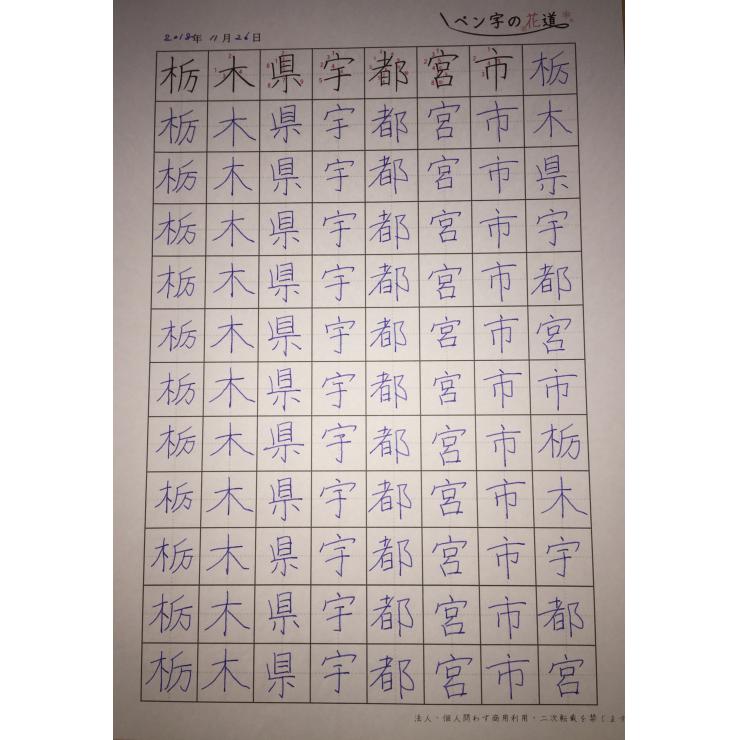 ペン字の花道
2018年 11月26日
栃木県宇都宮市栃
栃木県宇都宮市木
栃木県宇都宮市県
栃木県宇都宮市宇
栃木県宇都宮市都
栃木県宇都宮市宮
栃木県宇都宮市市
栃木県宇都宮市栃
栃木県宇都宮市木
栃木県宇都宮市宇
栃木県宇都宮市都
栃木県宇都宮市宮
法人・個人問わず商用利用・二次転載を禁じます